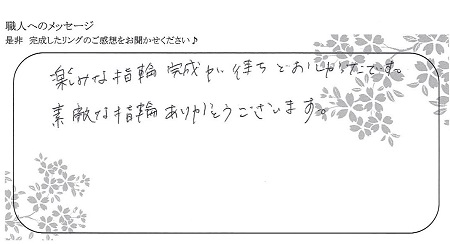 職人へのメッセージ
是非 完成したリングのご感想をお聞かせください♪
楽しみな指輪完成が待ちどおしかったです。
素敵な指輪ありがとうございます。